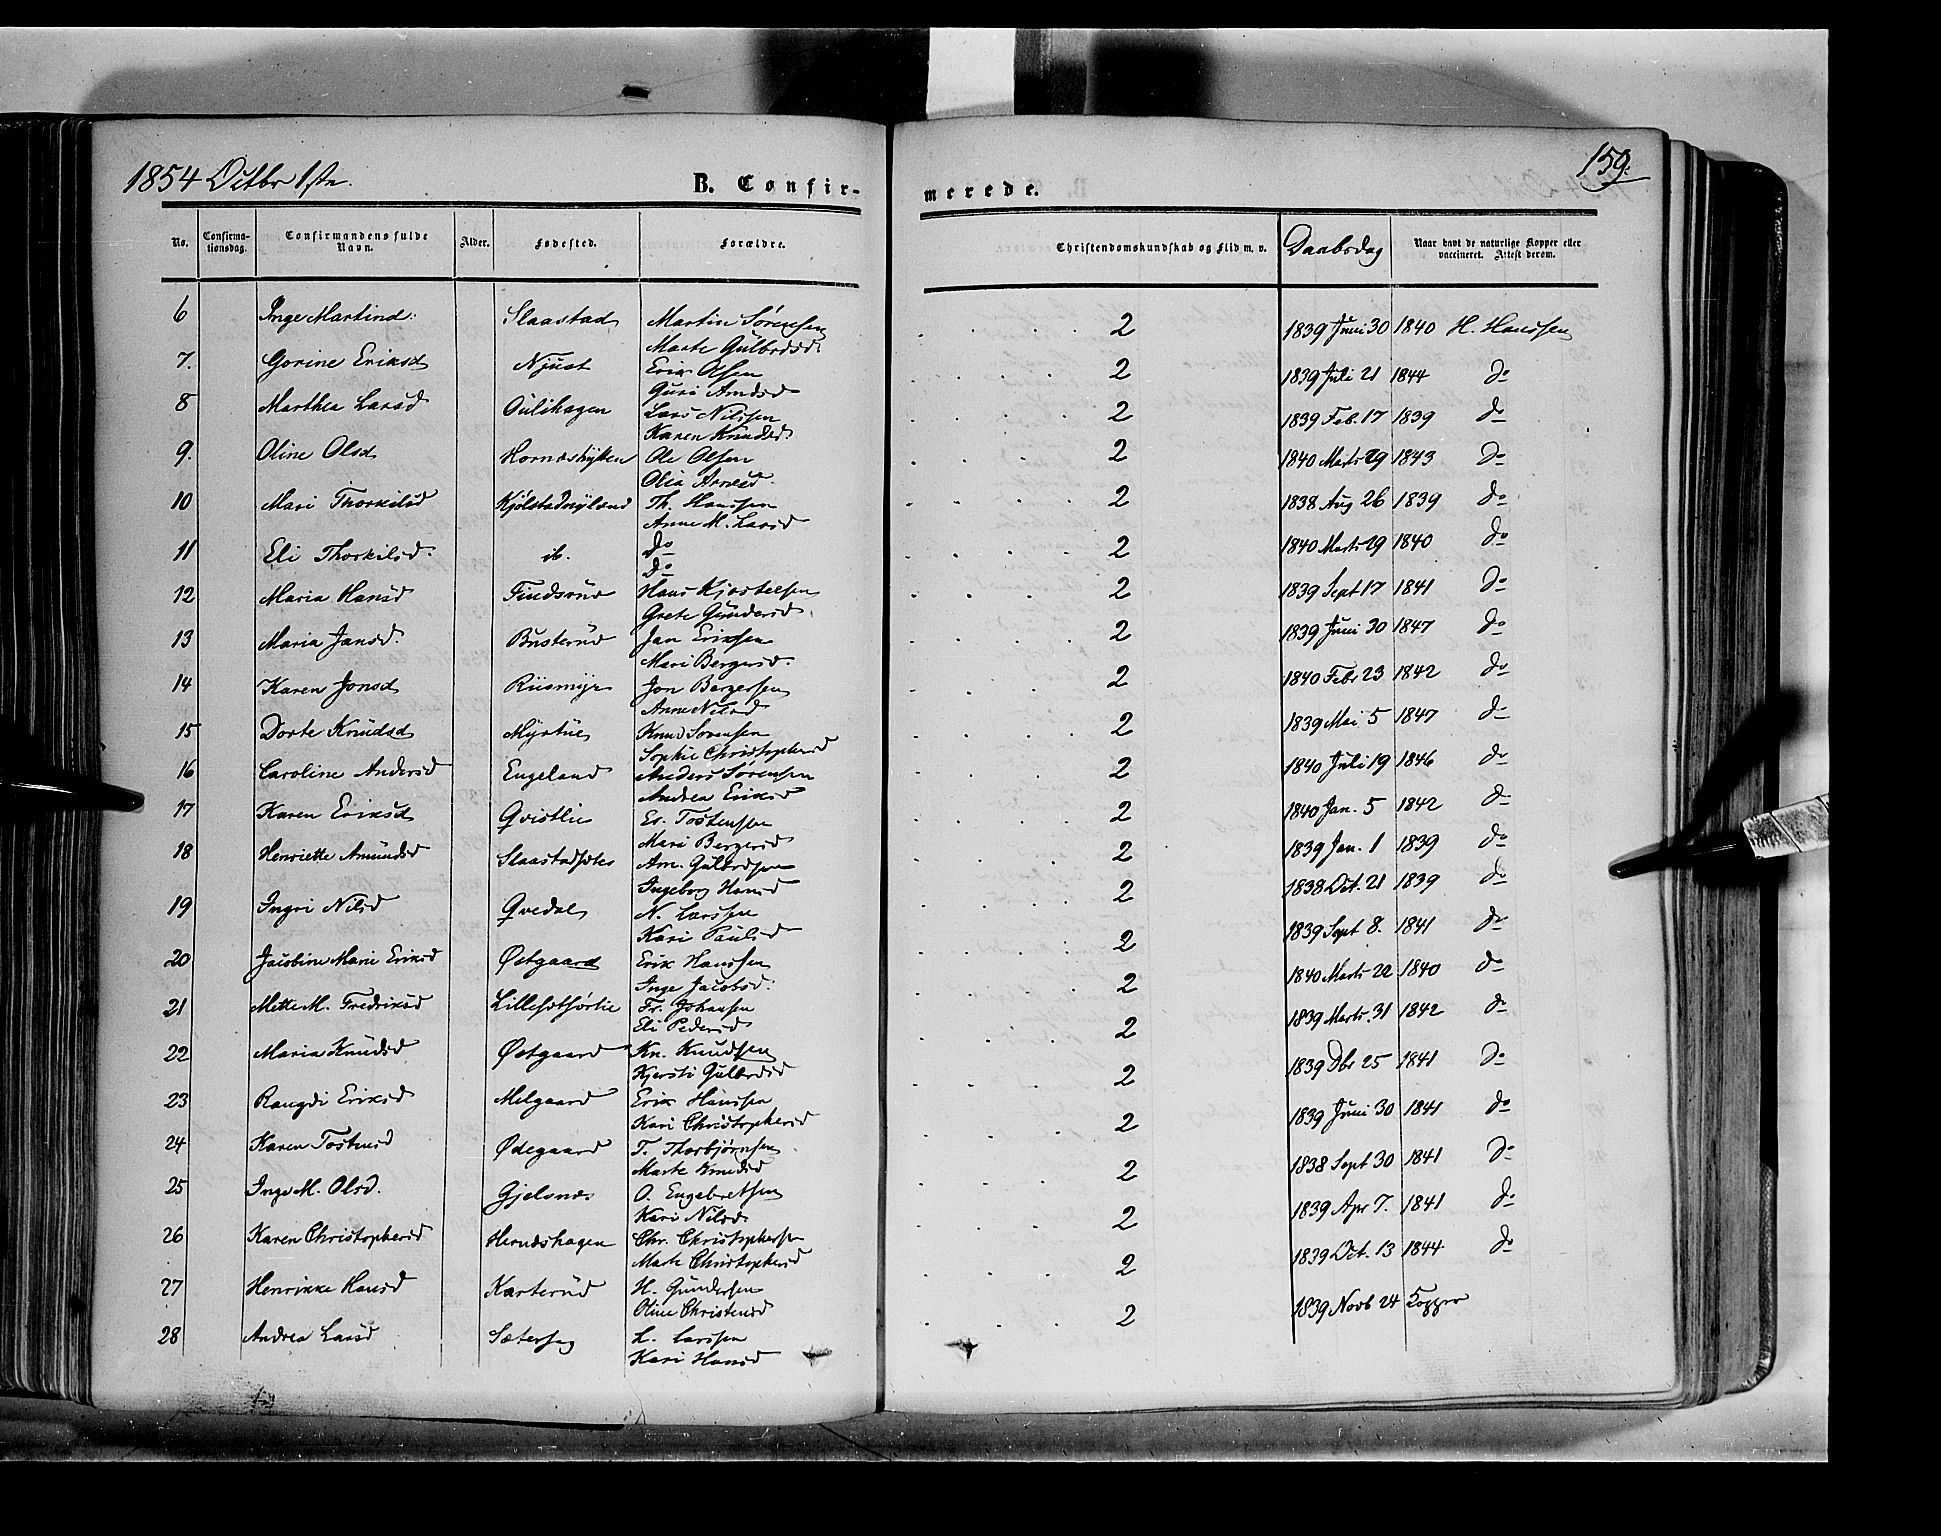 1854 Octbr 1ste.
B. Confir-
merede.
159.
No.
Confirma-
tionsdag.
Confirmandens fulde
Navn.
Alder.
Fødested.
Forældre.
Christendomskundskab og Flid m. v.
Daabsdag
Naar havt de naturlige Kopper eller
vaccineret. Attest derom.
6 Inge Martind. Slaastad Martin Sørensen 2 1839 Juni 30 1840 H. Hanssen
Marte Gulbrdsd.
7. Gorine Eriksd Njust Erik Olsen 2 1839 Juli 21 1844 do
Guri Arndsd
8 Marthea Larsd Oulihagen Lars Nilssen 2 1839 Feb. 17 1839 do
Karen Knudsd.
9. Oline Olsd Ole Olsen 2 1840 Marts 29 1843 do
Olia
10 Mari Thorkilsd Kjølstadnyland Th. Hanssen 2 1838 Aug 26 1839 do
Anne M. Larsd
11 Eli Thorkilsd. ib. Do 2 1840 Marts 29 1840 do
Do
12 Maria Hansd Findsrud Hans Kjostelsen 2 1839 Sept 17 1841 do
Grete Gundersd.
13 Maria Jansd. Busterud Jan Eriksen 2 1839 Juni 30 1847 do
Mari Bergersd.
14 Karen Jonsd Riismyr Jon Bergersen 2 1840 Febr 23 1842 do
Anne Nilsd
15 Dorte Knudsd Myrtue Knud Sorensen 2 1839 Mai 5 1847 do
Sophie Christophersd
16 Caroline Andersd Engeland Anders Sørensen 2 1840 Juli 19 1846 do
Andrea Eriksd
17 Karen Eriksd Qvistlie Er. Tostensen 2 1840 Jan. 5 1842 do
Mari Bergersd
18 Henriette Amundsd Slaastadsætes Am. Gulbrdsen 2 1839 Jan. 1 1839 do
Ingeborg Hansd
19 Ingri Nilsd Qvedal N. Larssen 2 1838 Oct. 21 1839 do
Kari Paulsd
20 Jacobine Marie Eriksd Østgaard Erik Hanssen 2 1839 Sept 8. 1841 do
Inge Jacobsd.
21 Mette M. Fredriksd Fr. Johansen 2 1840 Marts 22 1840 do
Eli Pedersd
22 Maria Knudsd Østgaard Kn. Knudsen 2 1839 Marts. 31 1842 do
Kjersti Gulbrdsd
23 Rangdi Eriksd Melgaard Erik Hanssen 2 1839 Dbr 25 1841 do
Kari Christophersd
24 Karen Tostensd Ødegaard T. Thorbjørnsen 2 1839 Juni 30 1841 do
Marte Knudsd
25 Inge M. Olsd. Gjelsnes O. Engebretsen 2 1838 Sept 30 1841 do
Kari Nilsd
26 Karen Christophersd Hernæshagen Chr. Christophersen 2 1839 Apr 7. 1841 do
Marte Christophersd
27 Henrikke Hansd Karterud H. Gundersen 2 1839 Oct. 13 1844 do
Oline Christensd
28 Andrea Larsd L. Larssen 2 1839 Novb 24 Kopper
Kari Hansd